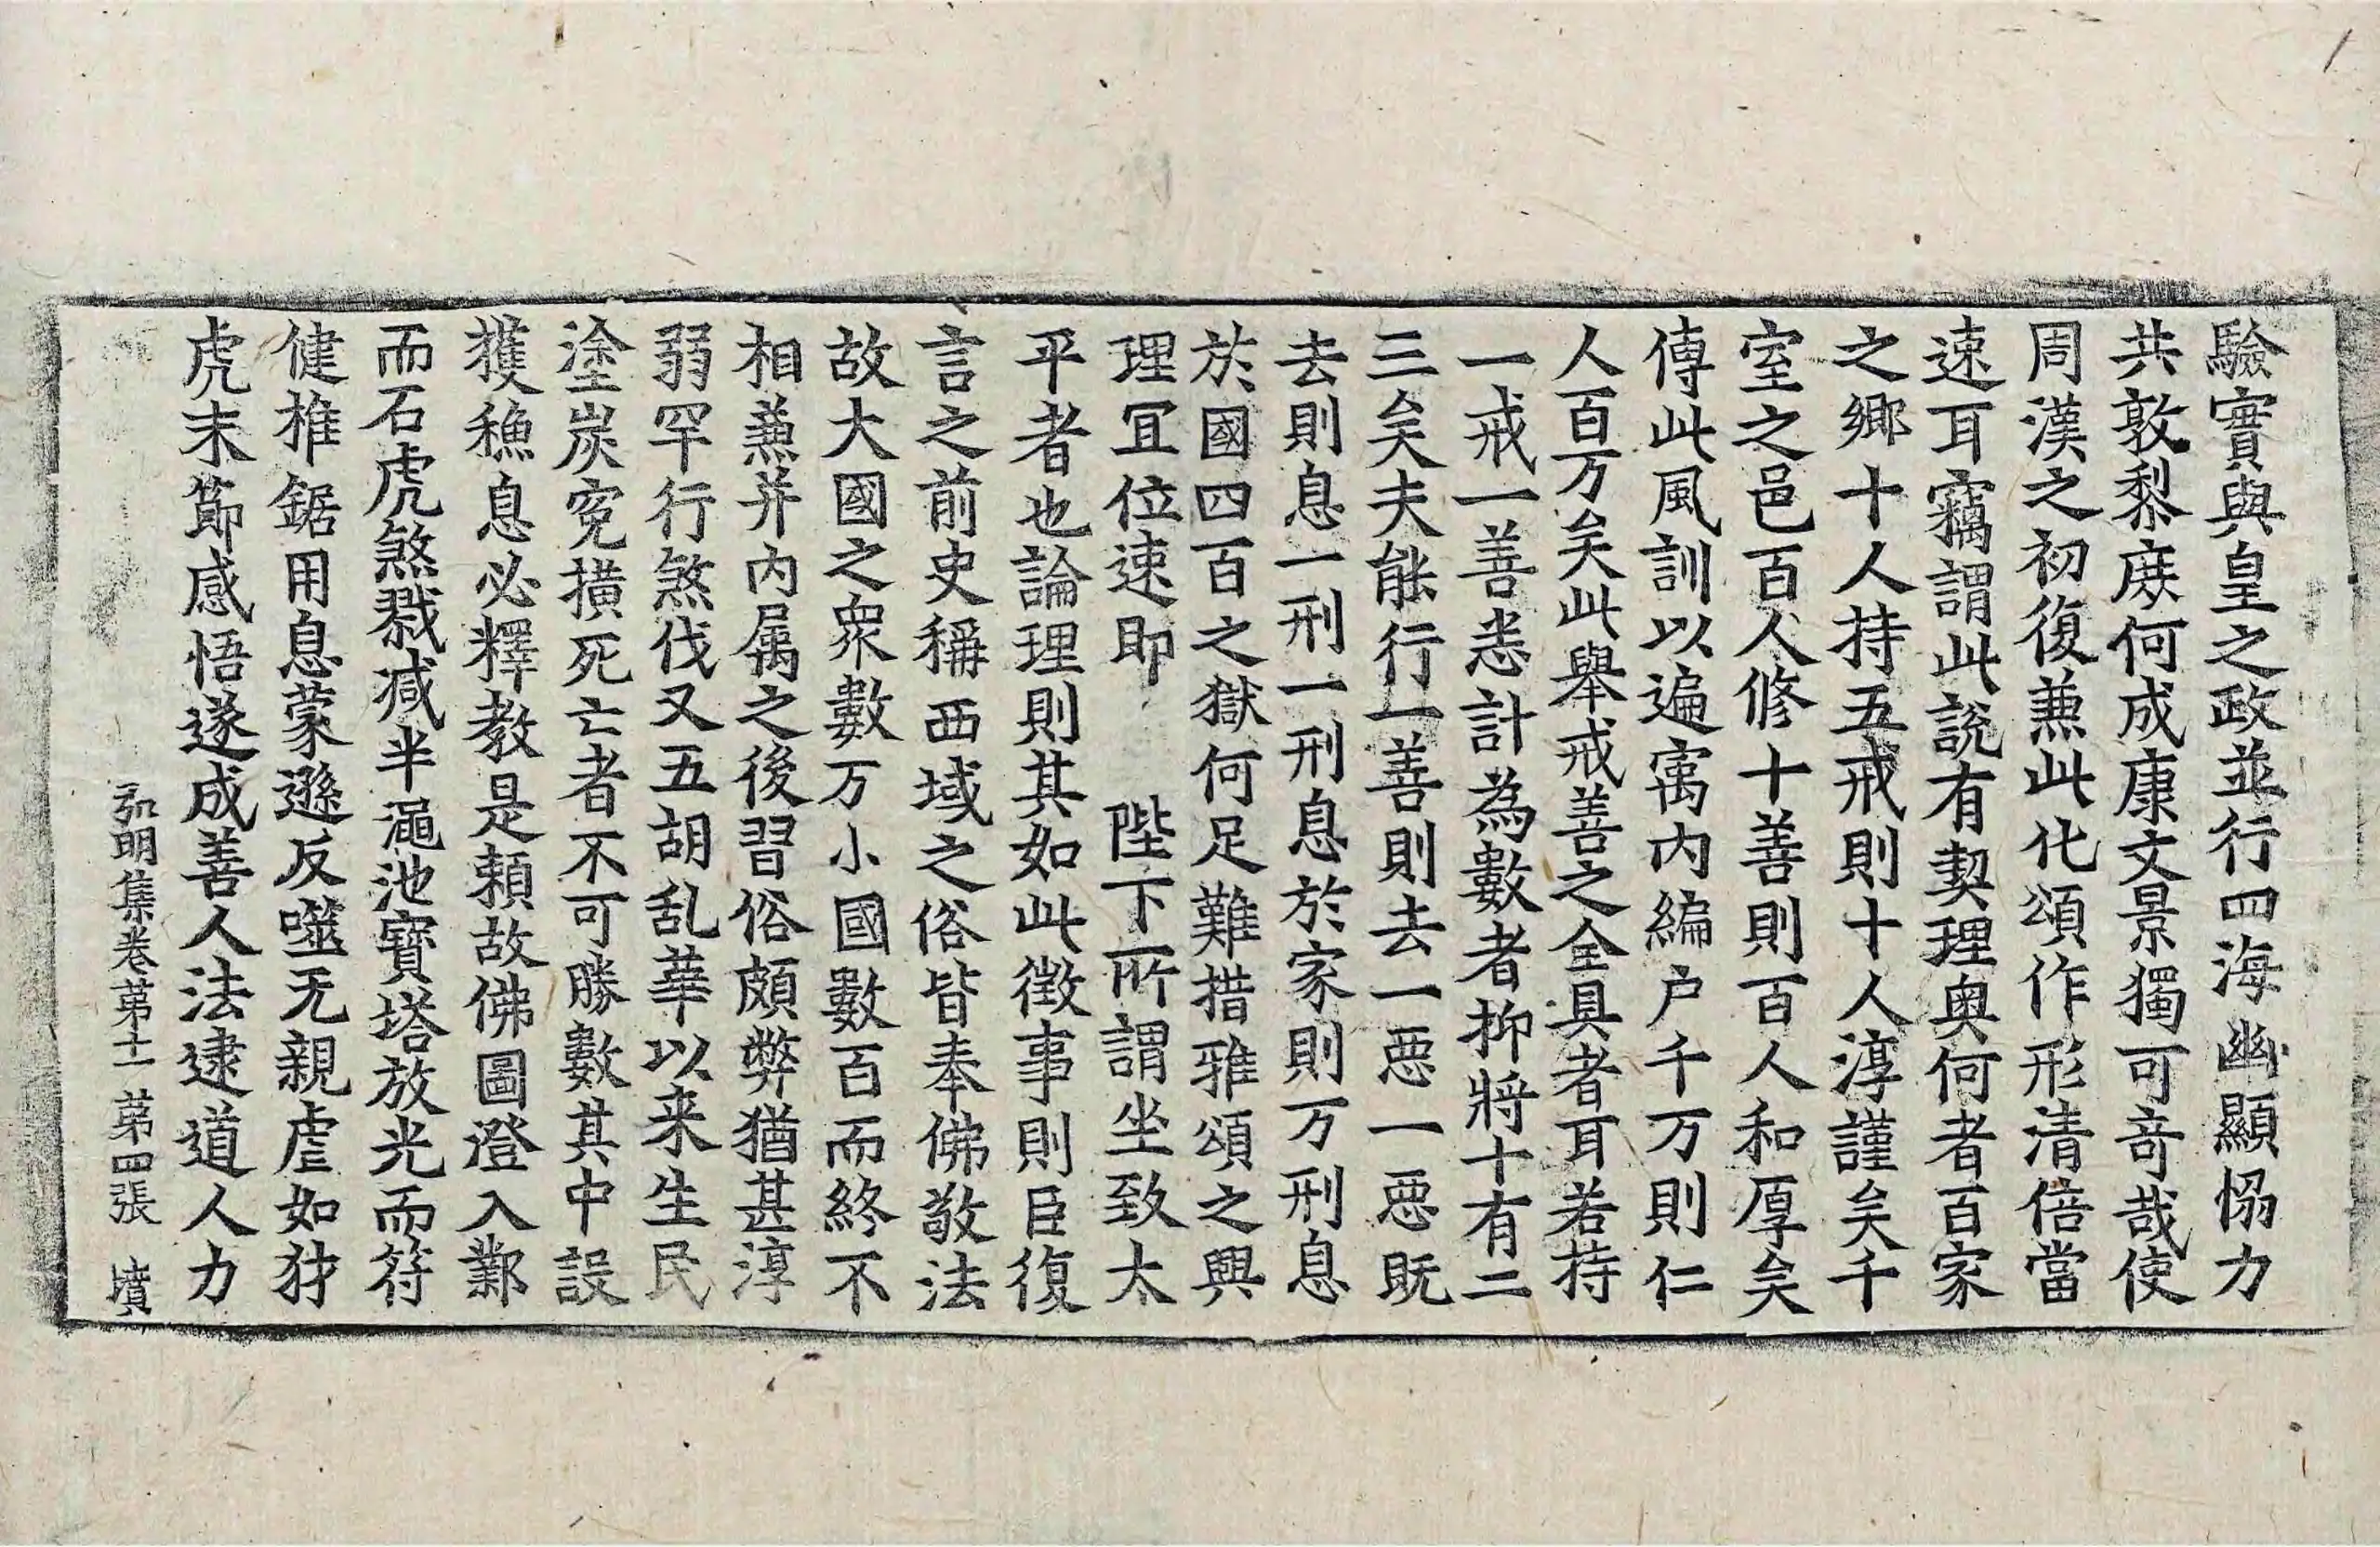 驗實與皇之政並行四海幽顯恊力
共敦黎庻何成康文景獨可竒哉使
周漢之初復蕪此化頌作形清倍當
速耳竊謂此說有契理奥何者百家
之鄉十人持五戒則十人淳謹矣千
室之邑百人修十善則百人和厚矣
傳此風訓以遍寓内編户千万則仁
人百万矣此舉戒善之全具者耳若持
一戒一善悉計為數者抑將十有二
三矣夫能行一善則去一惡一惡既
去則息一刑一刑息於家則万刑息
於國四百之獄何足難措雅頌之興
理冝位速即 陛下所謂坐致太
平者也論理則其如此徵事則臣復
言之前史稱西域之俗皆奉佛敬法
故大國之衆數万小國數百而終不
相蕪并内属之後習俗頗弊猶甚淳
弱罕行煞伐又五胡乱華以来生民
塗炭寃撗死亡者不可勝數其中設
獲穌息必釋教是賴故佛圖澄入鄴
而石虎煞戮减半澠池寶塔放光而符
健椎鋸用息蒙遜反噬无親虐如犲
虎末節感悟遂成善人法逮道人力
弘明集卷第十一 第四張 墳